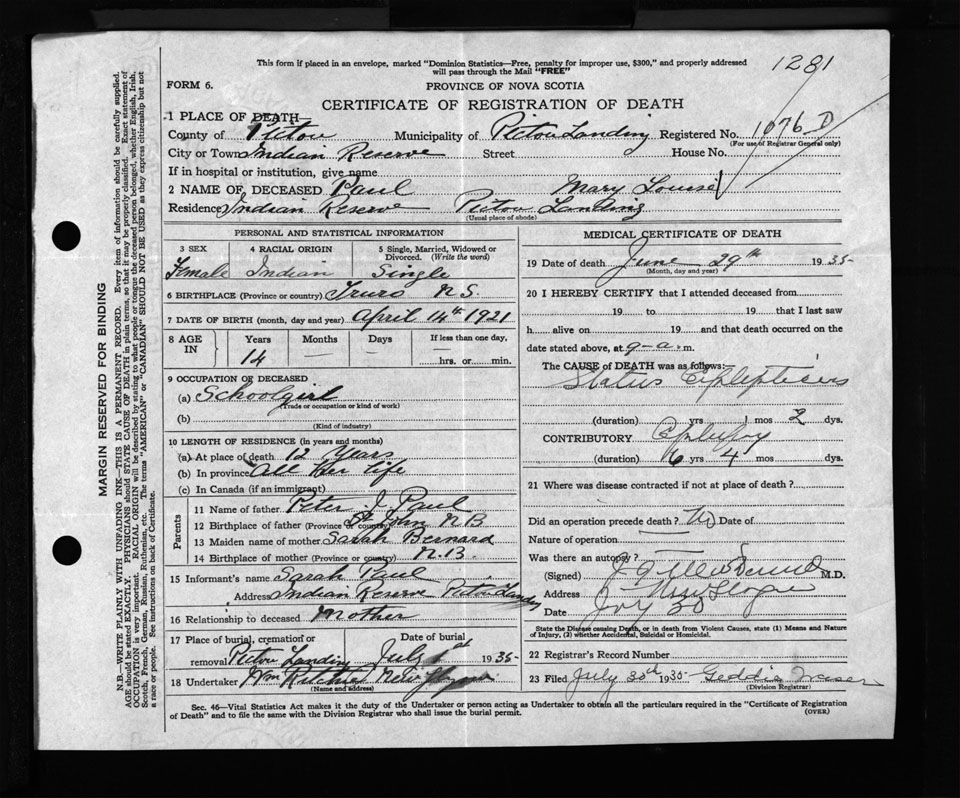 This form if placed in an envelope, marked "Dominion Statistics—Free, penalty for improper use, $300," and properly addressed
will pass through the Mail "FREE"
1281
FORM 6.
PROVINCE OF NOVA SCOTIA
CERTIFICATE OF REGISTRATION OF DEATH
1 PLACE OF DEATH—
County of Pictou Municipality of Pictou Landing Registered No. 1076 D
(For use of Registrar General only)
City or Town Indian Reserve Street House No.
If in hospital or institution, give name
2 NAME OF DECEASED Paul Mary Louise
Residence Indian Reserve Pictou Landing
(Usual place of abode)
PERSONAL AND STATISTICAL INFORMATION
3 SEX 4 RACIAL ORIGIN 5 Single, Married, Widowed or Divorced. (Write the word)
Female Indian Single
6 BIRTHPLACE (Province or country) Truro N.S.
7 DATE OF BIRTH (month, day and year) April 14th 1921
8 AGE IN Years Months Days If less than one day,
14 — — hrs. or min.
9 OCCUPATION OF DECEASED
(a) Schoolgirl
(Trade or occupation or kind of work)
(b)
(Kind of industry)
10 LENGTH OF RESIDENCE (in years and months)
(a) At place of death 12 Years
(b) In province All Her Life
(c) In Canada (if an immigrant)
Parents
11 Name of father Peter J. Paul
12 Birthplace of father (Province or country) St John N.B.
13 Maiden name of mother Sarah Bernard
14 Birthplace of mother (Province or country) N.B.
15 Informant's name Sarah Paul
Address Indian Reserve Pictou Landing
16 Relationship to deceased Mother
17 Place of burial, cremation or removal Date of burial
Pictou Landing July 1st 1935
18 Undertaker Wm Ritchie New Glasgow
(Name and address)
MEDICAL CERTIFICATE OF DEATH
19 Date of death June 29th 1935
(Month, day and year)
20 I HEREBY CERTIFY that I attended deceased from
19 to 19 that I last saw
h alive on 19 and that death occurred on the
date stated above, at 9-a.m.
The CAUSE of DEATH was as follows:—
Status Epilepticus
(duration) yrs 1 mos 2 dys.
CONTRIBUTORY Epilepsy
(duration) 6 yrs 4 mos dys.
21 Where was disease contracted if not at place of death?
Did an operation precede death? No Date of
Nature of operation
Was there an autopsy?
(Signed) M.D.
Address New Glasgow
Date 30
State the Disease causing Death, or in death from Violent Causes, state (1) Means and Nature
of Injury, (2) whether Accidental, Suicidal or Homicidal.
22 Registrar's Record Number
23 Filed July 30th 1935
(Division Registrar)
Sec. 46—Vital Statistics Act makes it the duty of the Undertaker or person acting as Undertaker to obtain all the particulars required in the "Certificate of Registration
of Death" and to file the same with the Division Registrar who shall issue the burial permit.
(OVER)
MARGIN RESERVED FOR BINDING
N.B.—WRITE PLAINLY WITH UNFADING INK—THIS IS A PERMANENT RECORD. Every item of information should be carefully supplied.
AGE should be stated EXACTLY. PHYSICIANS should STATE CAUSE OF DEATH in plain terms, so that it may be properly classified. Exact statement of
OCCUPATION is very important. RACIAL ORIGIN will be described by stating to what people or tongue the deceased person belonged, whether English, Irish,
Scotch, French, German, Russian, Ruthenian, etc. The terms "AMERICAN" or "CANADIAN" SHOULD NOT BE USED as they express citizenship but not
a race or people. See instructions on back of Certificate.